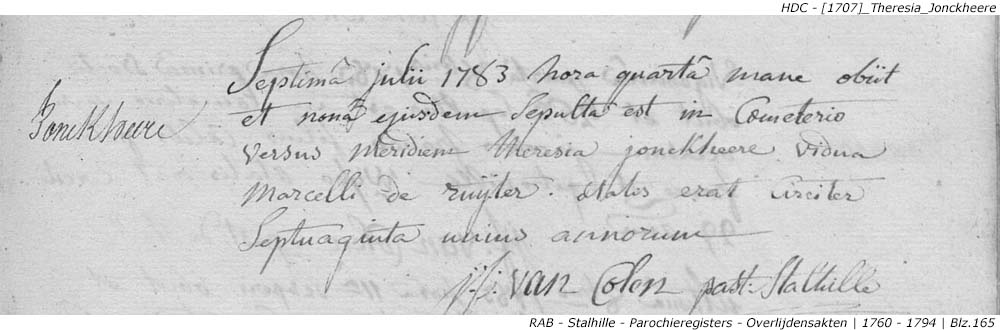 HDC - [1707]_Theresia_Jonckheere
Septimâ julii 1783 hora quartâ mane obiit
Jonckheere
et nonâ ejusdem Sepulta est in Cometerio
versus meridiem theresia jonckheere vidua
Marcelli de ruÿter. Ætates erat Circiter
Septuaginta unius annorum
j: j: van Colen past: Stalhille
RAB - Stalhille - Parochieregisters - Overlijdensakten | 1760 - 1794 | Blz.165